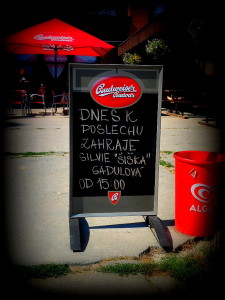 Budweiser
Budweiser
Budvar
DNES K
POSLECHU
ZAHRAJE
SILVIE "ŠIŠKA"
GADULOVÁ
OD 15.00
B
ALG